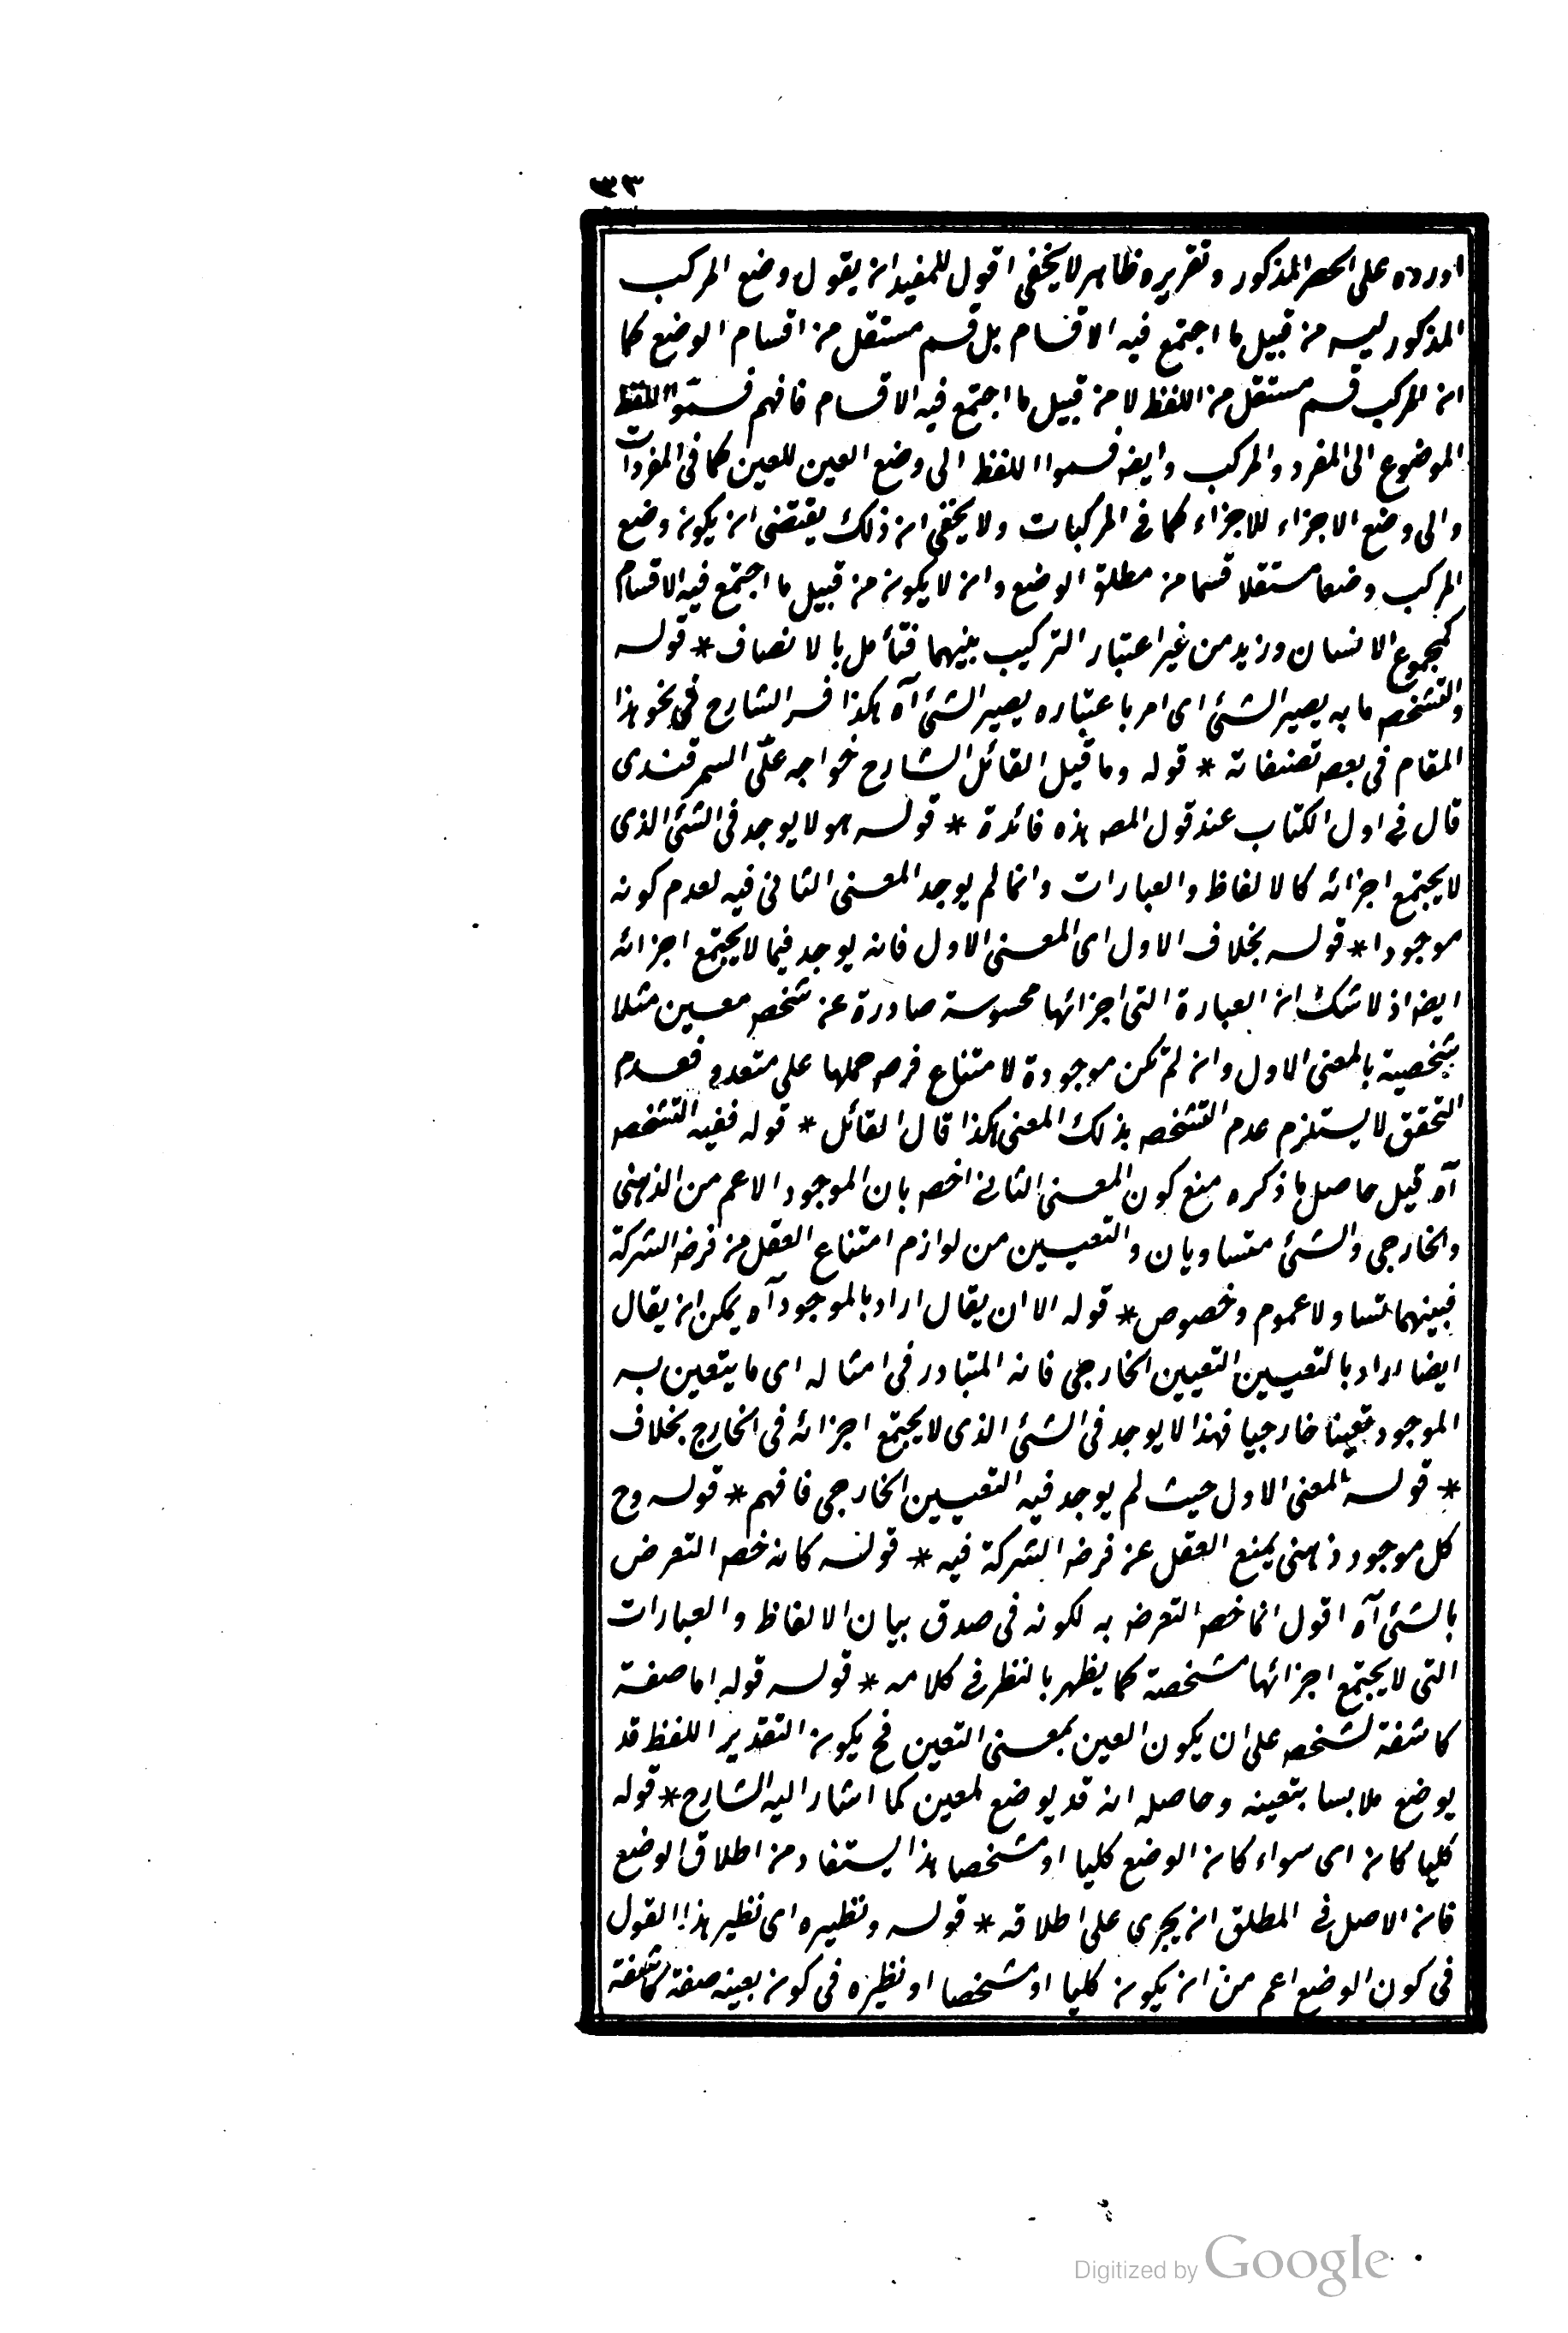 ٣٣
اورده على الحصر المذكور وتقريره ظاهر لا يخفى اقول للمفيد ان يقول وضع المركب
المذكور ليس من قبيل ما اجتمع فيه الاقسام بل قسم مستقل من اقسام الوضع كما
ان المركب قسم مستقل من اللفظ لا من قبيل ما اجتمع فيه الاقسام فافهم قسموا اللفظ
الموضوع الى المفرد والمركب وايضه قسموا اللفظ الى وضع العين للعين كما فى المفردات
والى وضع الاجزاء للاجزاء كما فى المركبات ولا يخفى ان ذلك يقتضى ان يكون وضع
المركب وضعا مستقلا قسما من مطلق الوضع وان لا يكون من قبيل ما اجتمع فيه الاقسام
كمجموع الانسان وزيد من غير اعتبار التركيب بينهما فتأمل بالانصاف * قوله
والتشخص ما به يصير الشئ اى امر باعتباره يصير الشئ آه هكذا فسر الشارح فى نحو هذا
المقام فى بعض تصنيفاته * قوله وما قيل القائل الشارح خواجه على السمرقندى
قال فى اول الكتاب عند قول المص هذه فائدة * قوله هو لا يوجد فى الشئ الذى
لا يجتمع اجزائه كالالفاظ والعبارات وانما لم يوجد المعنى الثانى فيه لعدم كونه
موجودا * قوله بخلاف الاول اى المعنى الاول فانه يوجد فيما لا يجتمع اجزائه
ايضه اذ لا شك ان العبارة التى اجزائها محسوسة صادرة عن شخص معين مثلا
شخصية بالمعنى الاول وان لم تكن موجودة لامتناع فرض حملها على متعدد فعدم
التحقق لا يستلزم عدم التشخص بذلك المعنى هكذا قال القائل * قوله ففيه التشخص
آه قيل حاصل ما ذكره منع كون المعنى الثانى اخص بان الموجود الاعم من الذهنى
والخارجى والشئ متساويان والتعيين من لوازم امتناع العقل من فرض الشركة
فبينهما تساو ولا عموم وخصوص * قوله الا ان يقال اراد بالموجود آه يمكن ان يقال
ايضا اراد بالتعيين التعيين الخارجى فانه المتبادر فى امثاله اى ما يتعين به
الموجود تعينا خارجيا فهذا لا يوجد فى الشئ الذى لا يجتمع اجزائه فى الخارج بخلاف
* قوله المعنى الاول حيث لم يوجد فيه التعيين الخارجى فافهم * قوله وح
كل موجود ذهنى يمنع العقل عن فرض الشركة فيه * قوله كانه خص التعرض
بالشئ آه اقول انما خص التعرض به لكونه فى صدق بيان الالفاظ والعبارات
التى لا يجتمع اجزائها مشخصة كما يظهر بالنظر فى كلامه * قوله قوله اما صفة
كاشفة لشخص على ان يكون العين بمعنى التعين فح يكون التقدير اللفظ قد
يوضع ملابسا بتعينه وحاصله انه قد يوضع لمعين كما اشار اليه الشارح * قوله
كليا كان اى سواء كان الوضع كليا او مشخصا هذا يستفاد من اطلاق الوضع
فان الاصل فى المطلق ان يجرى على اطلاقه * قوله ونظيره اى نظير هذا القول
فى كون الوضع اعم من ان يكون كليا او مشخصا او نظيره فى كون بعينه صفة كاشفة
Digitized by Google